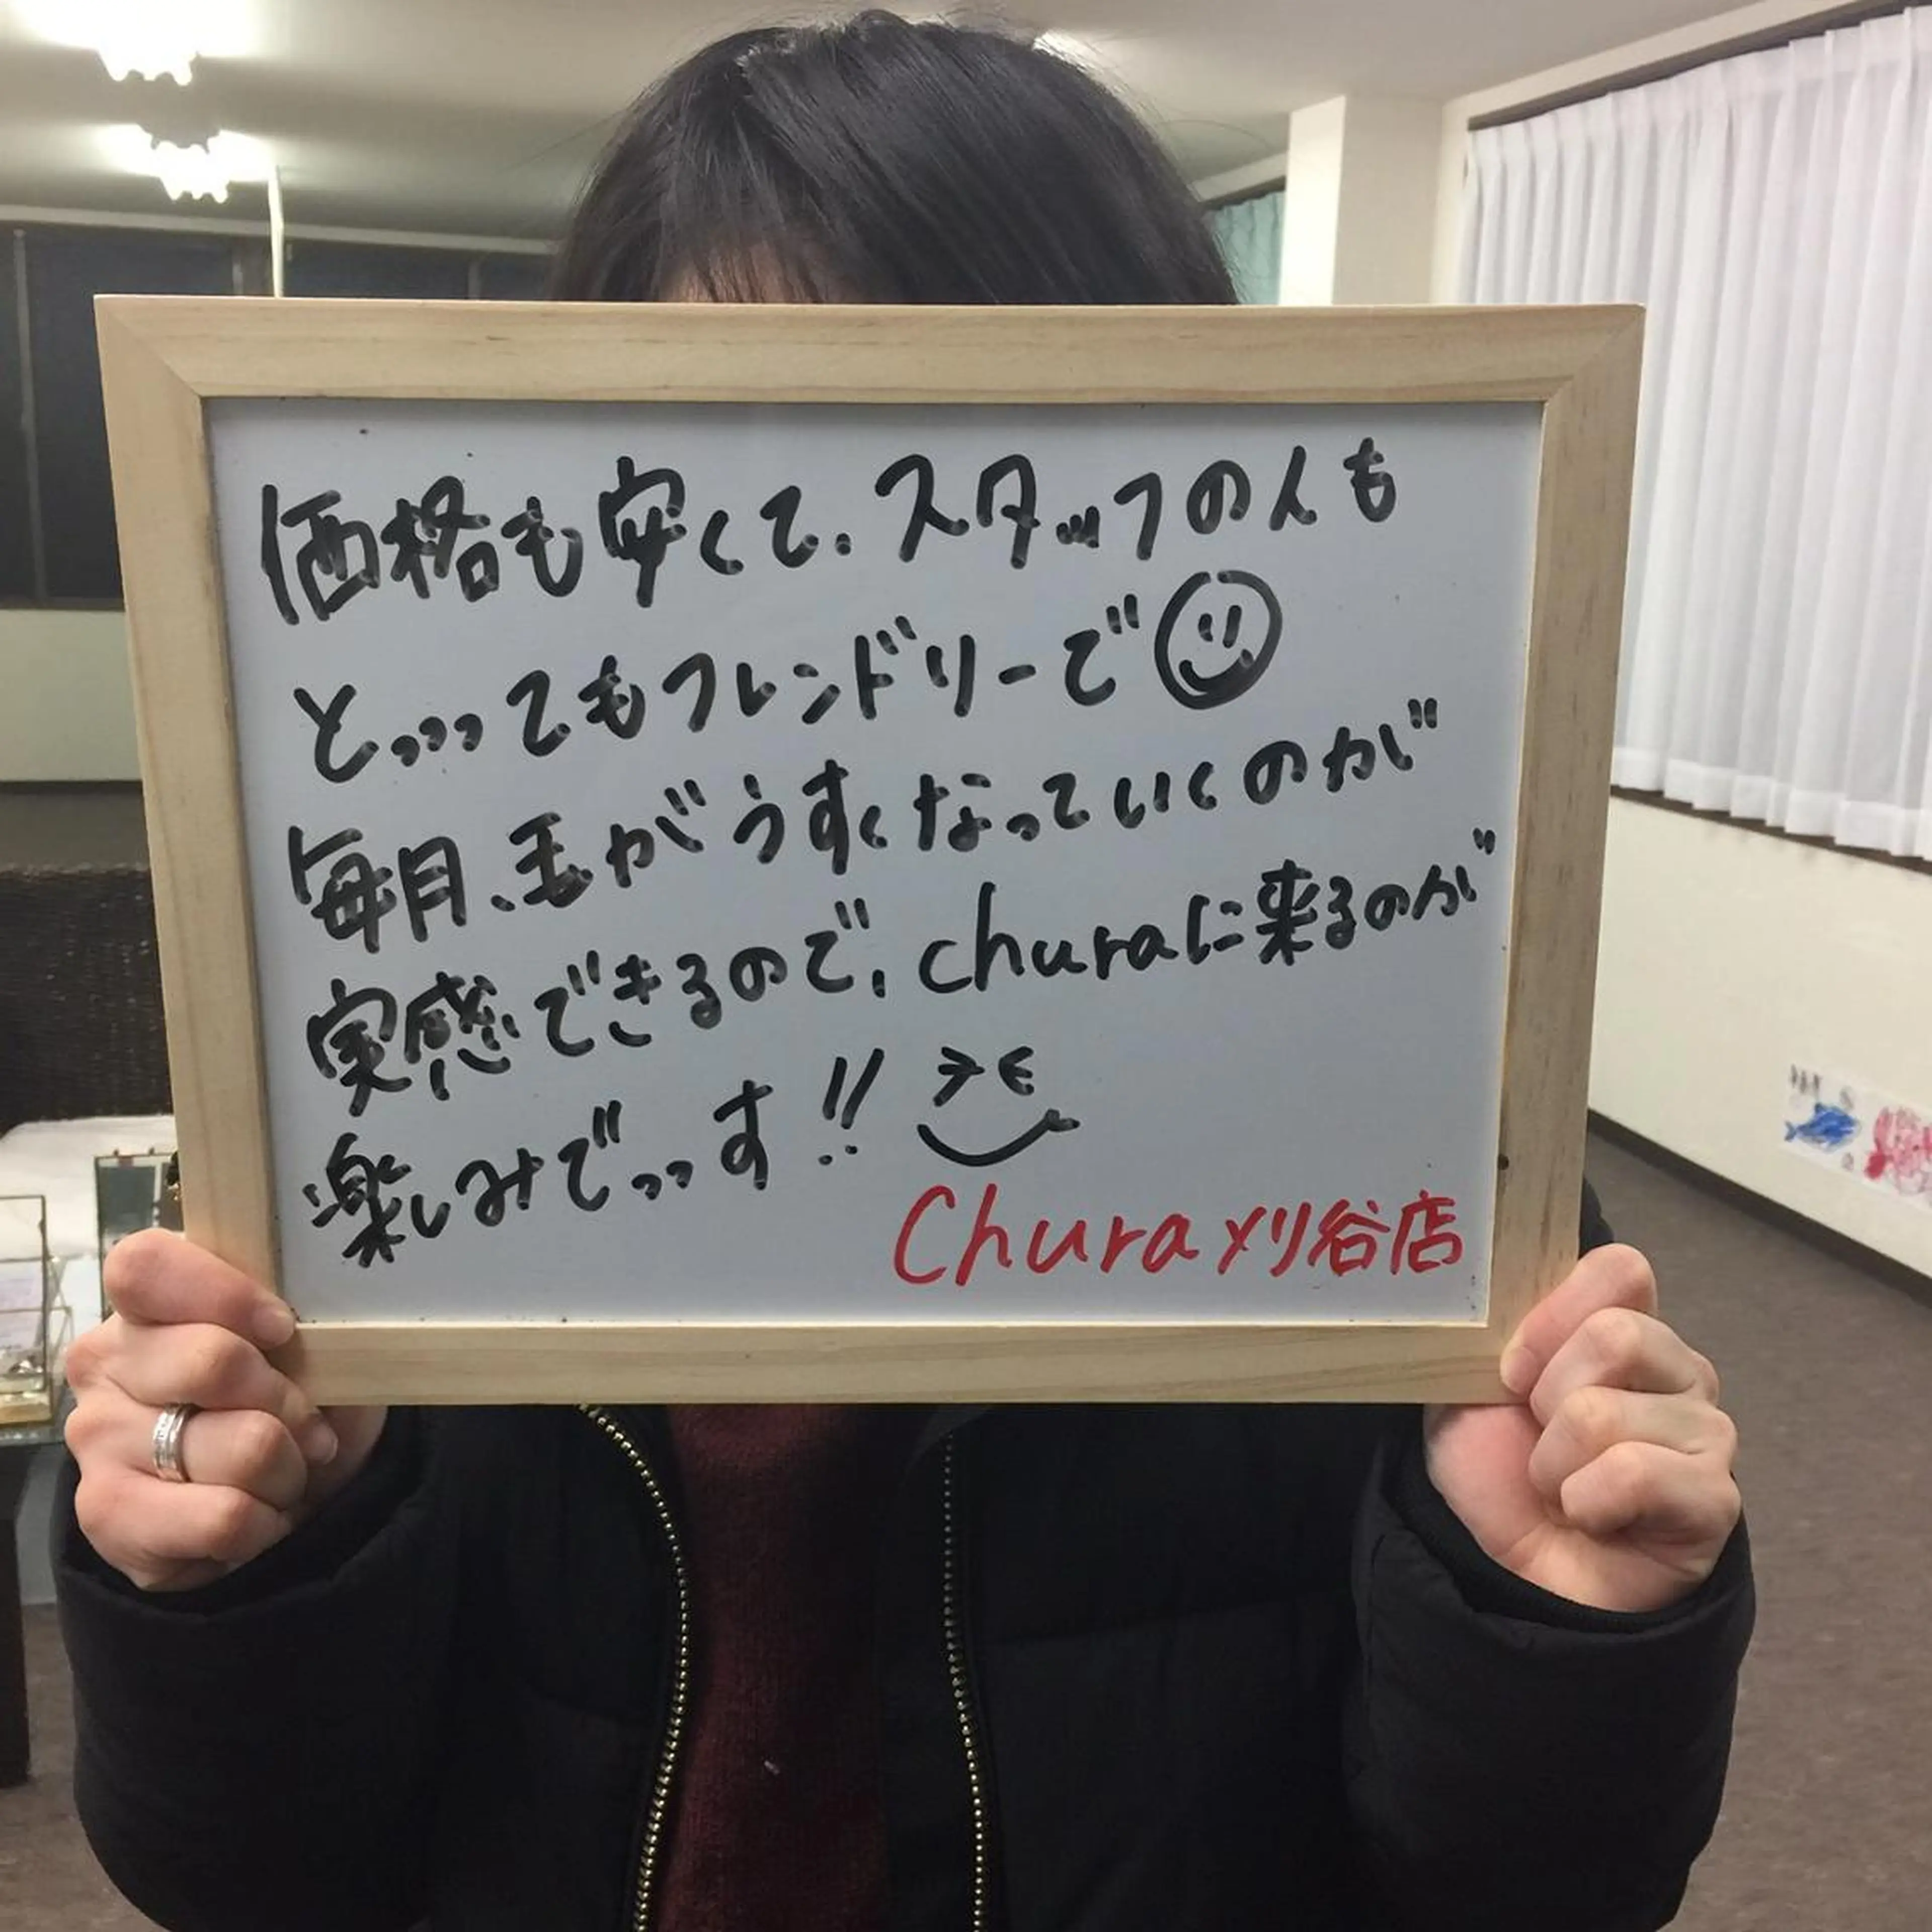 価格も安くて、スタッフの人も
とっっってもフレンドリーで
毎月、毛がうすくなっていくのが
実感できるので、churaに来るのが
楽しみでっっす!!
Chura刈谷店